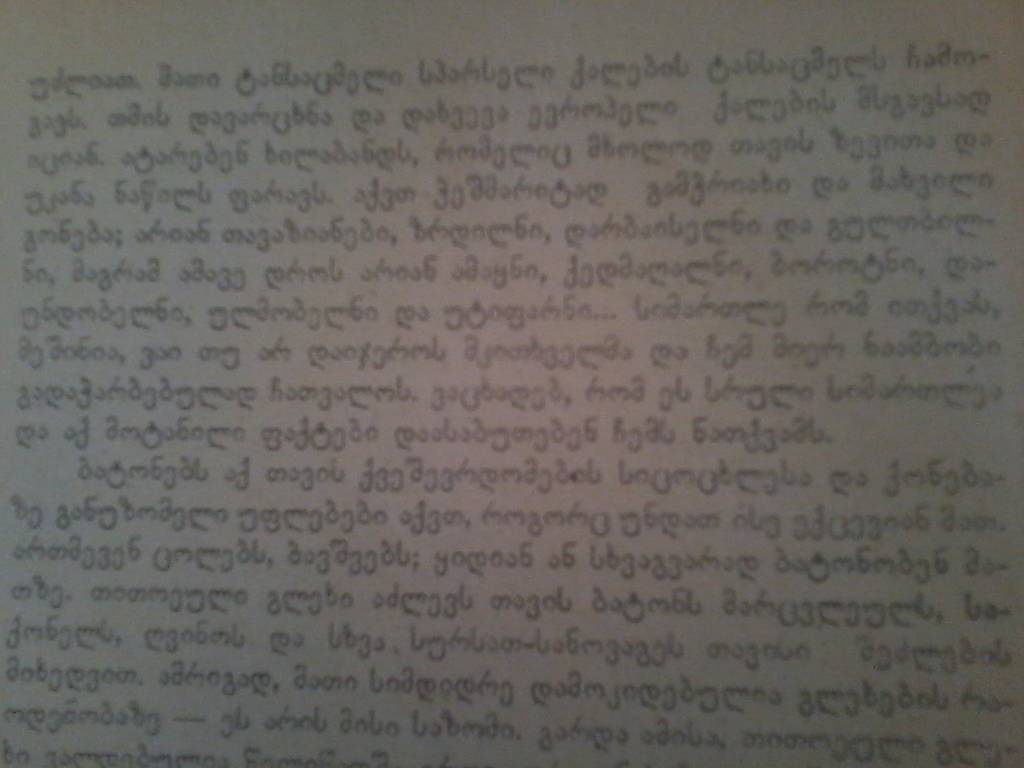 უძლიათ. მათი ტანსაცმელი სპარსელი ქალების ტანსაცმელს ჩამო-
გავს. თმის დავარცხნა და დახვევა ევროპელი ქალების მსგავსად
იციან. ატარებენ ხილაბანდს, რომელიც მხოლოდ თავის ზევითა და
უკანა ნაწილს ფარავს. აქვთ ჭეშმარიტად გამჭრიახი და მახვილი
გონება; არიან თავაზიანები, ზრდილნი, დარბაისელნი და გულთბილ-
ნი, მაგრამ ამავე დროს არიან ამაყნი, ქედმაღალნი, ბოროტნი, და-
უნდობელნი, ულმობელნი და უტიფარნი... სიმართლე რომ ითქვას,
მეშინია, ვაი თუ არ დაიჯეროს მკითხველმა და ჩემ მიერ ნაამბობი
გადაჭარბებულად ჩათვალოს. ვაცხადებ, რომ ეს სრული სიმართლეა
და აქ მოტანილი ფაქტები დაასაბუთებენ ჩემს ნათქვამს.
ბატონებს აქ თავის ქვეშევრდომების სიცოცხლესა და ქონება-
ზე განუზომელი უფლებები აქვთ, როგორც უნდათ ისე ექცევიან მათ.
ართმევენ ცოლებს, ბავშვებს; ყიდიან ან სხვაგვარად ბატონობენ მა-
თზე. თითოეული გლეხი აძლევს თავის ბატონს მარცვლეულს, სა-
ქონელს, ღვინოს და სხვა სურსათ-სანოვაგეს თავისი შეძლების
მიხედვით. ამრიგად, მათი სიმდიდრე დამოკიდებულია გლეხების რა-
ოდენობაზე — ეს არის მისი საზომი. გარდა ამისა, თითოეული გლე-
ხი ვალდებულია